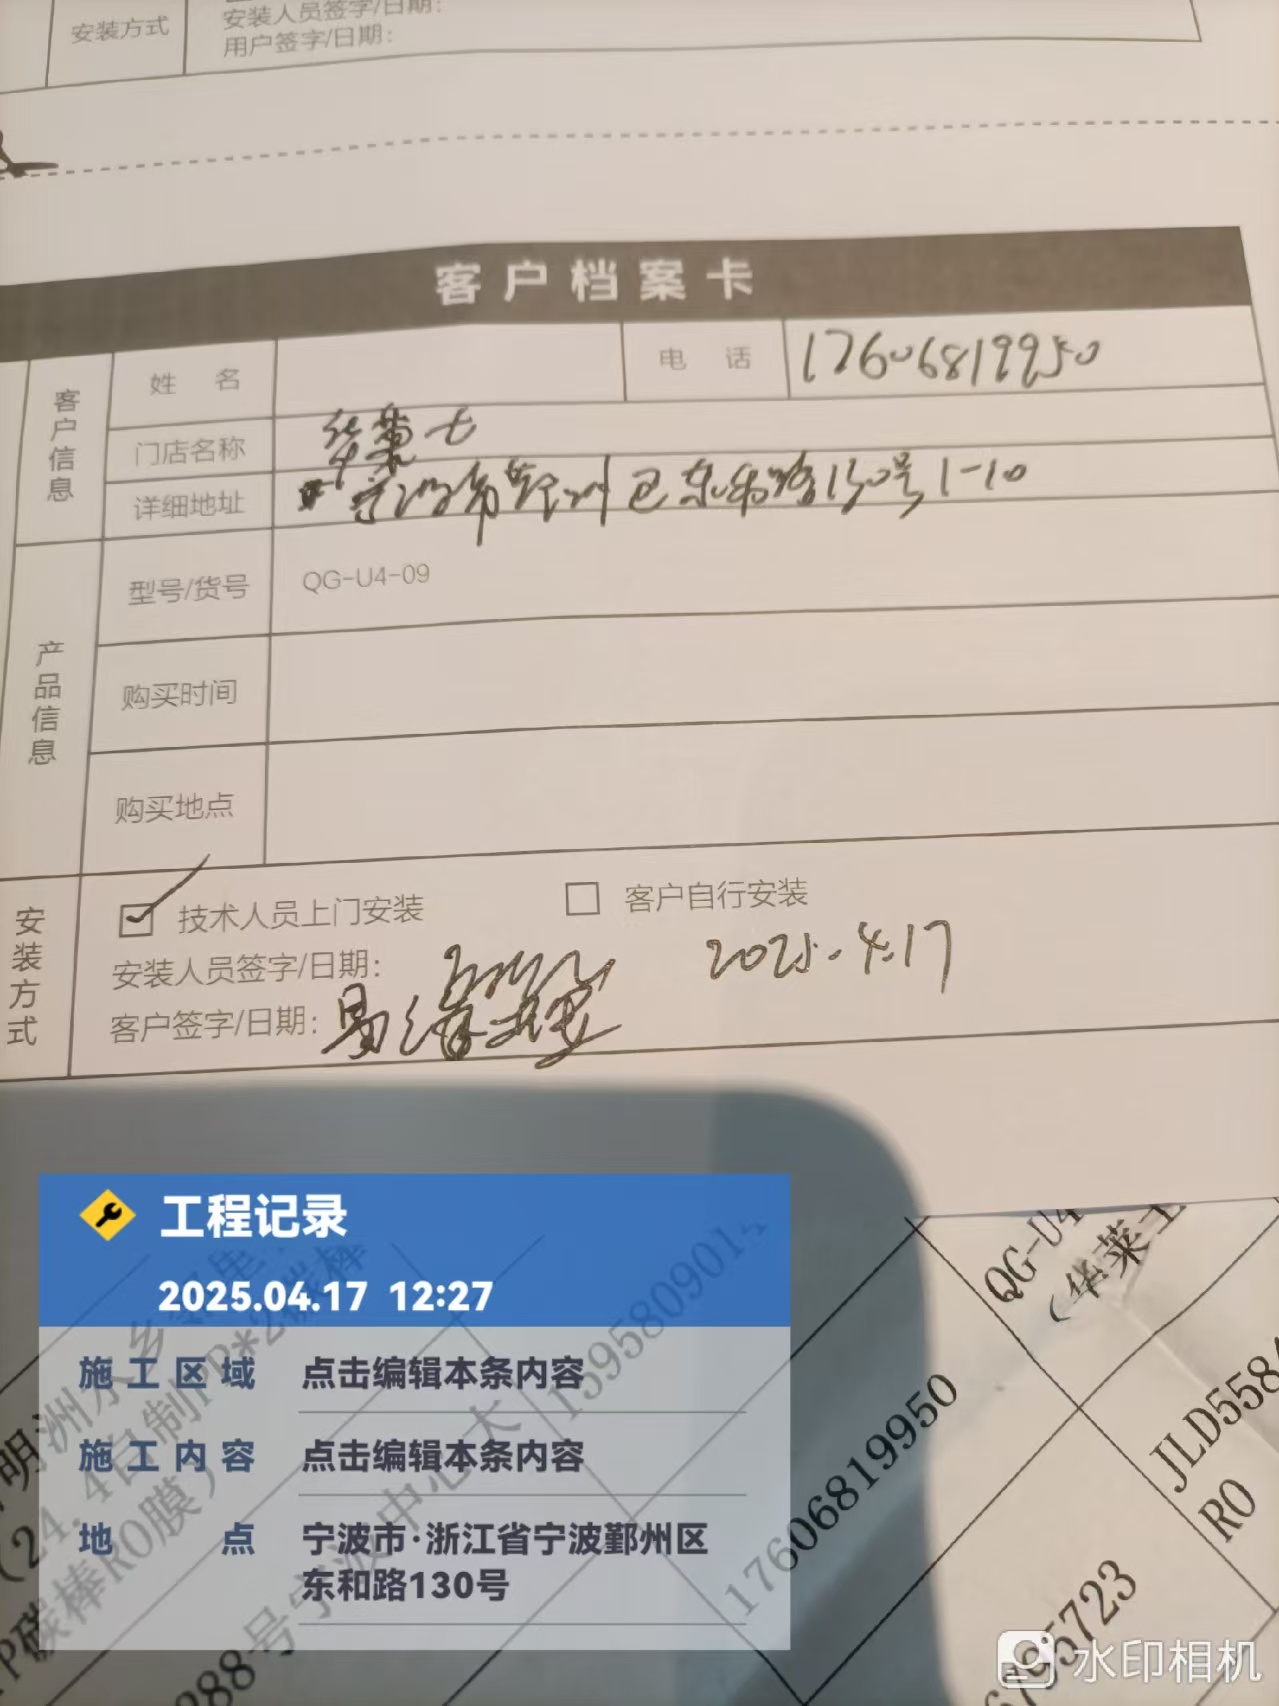 安装方式
安装人员签字/日期:
用户签字/日期:
客户档案卡
客户信息
姓 名
电 话 17606819950
门店名称 华莱士
详细地址 宁波市鄞州区东和路130号1-10
产品信息
型号/货号 QG-U4-09
购买时间
购买地点
安装方式
技术人员上门安装 客户自行安装
安装人员签字/日期: 2025.4.17
客户签字/日期:
工程记录
2025.04.17 12:27
施工区域 点击编辑本条内容
施工内容 点击编辑本条内容
地 点 宁波市·浙江省宁波鄞州区
东和路130号
QG-U4
(华莱士
1595809015
17606819950
JLD558
RO
6795723
水印相机